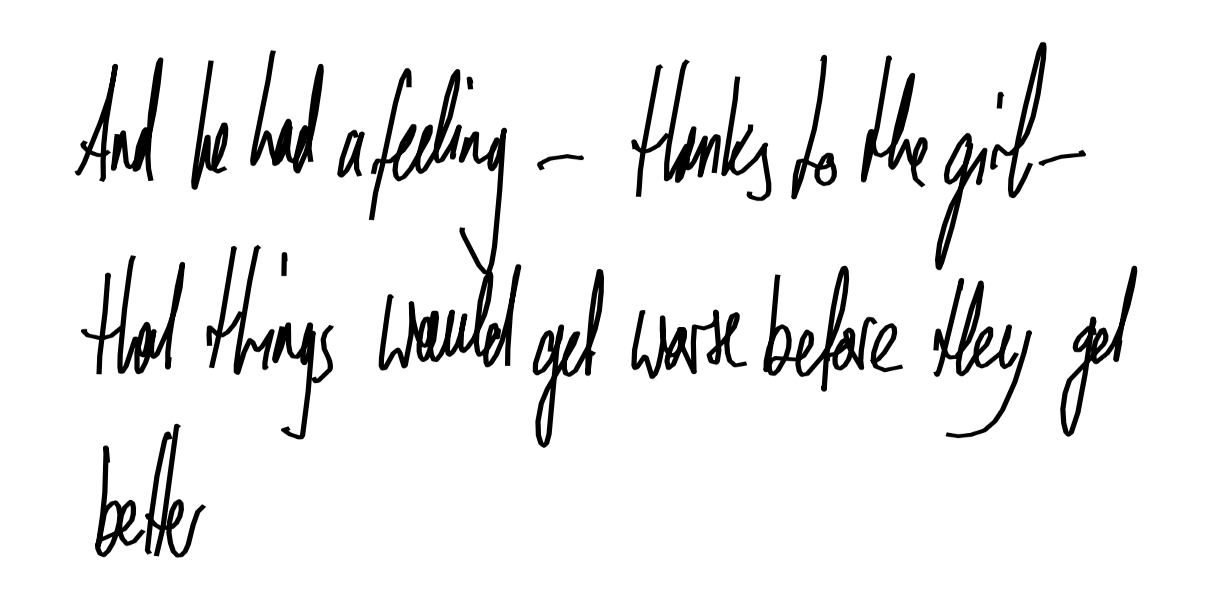 And he had a feeling - thanks to the girl -
that things would get worse before they get
better